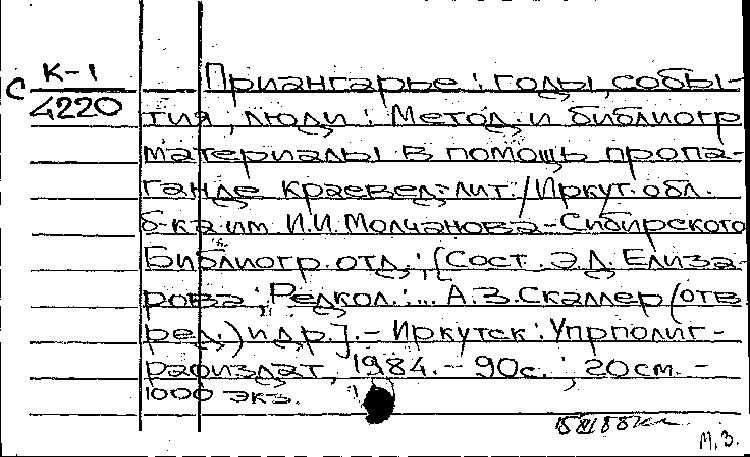 С К-1
4220
Приангарье : годы, собы-
тия, люди : Метод. и библиогр.
материалы в помощь пропа-
ганде краевед. лит. / Иркут. обл.
б-ка им. И.И. Молчанова-Сибирского.
Библиогр. отд. ; [Сост. Э.Д. Елиза-
рова ; Редкол.: ... А.З. Скаллер (отв.
ред.) и др.]. – Иркутск : Упрполиг-
рафиздат, 1984. – 90с. ; 20 см. –
1000 экз.
М.З.